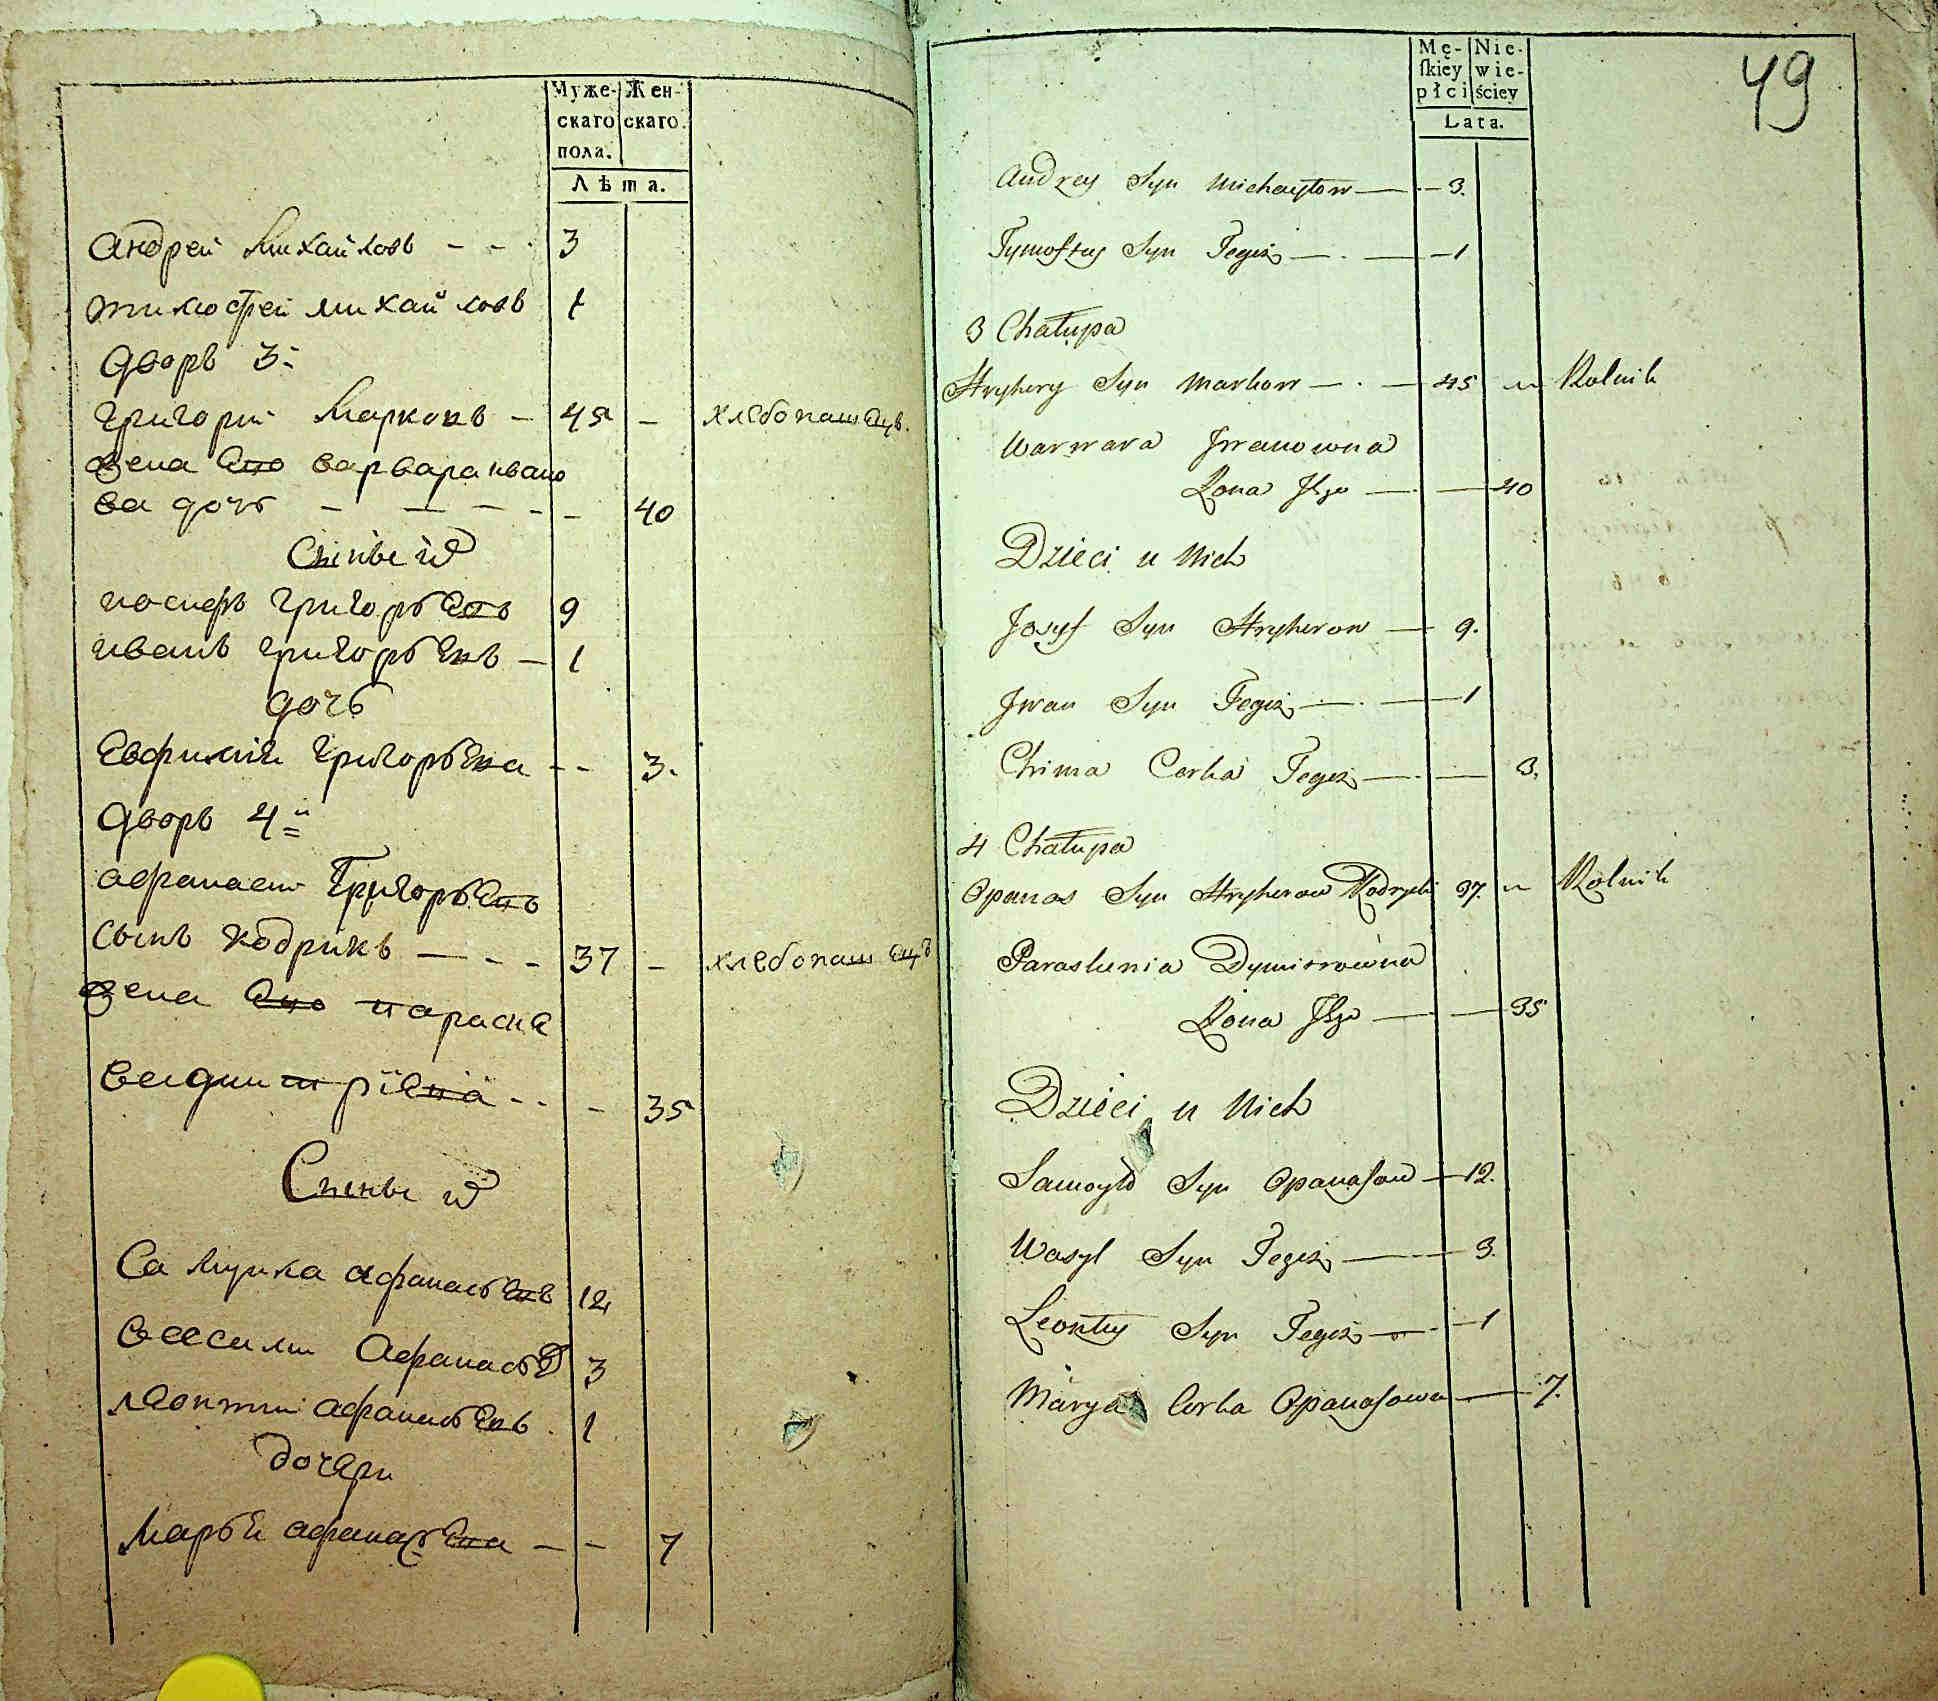 Муже- Жен-
скаго скаго
пола.
Лѣта.
Андрей Михайловъ - - - 3
тимофей михайловъ 1
дворъ 3й
григорий Марковъ - 45 - хлебопашецъ.
жена его варвара ивано
ва дочь - - - - - 40
Сыны их
иосифъ григорьевъ 9
иванъ григорьевъ - 1
дочь
Евфимия григорьева - - 3.
дворъ 4й
афанасей Григорьевъ
сынъ кодрикъ - - - 37 - хлебопашецъ
жена его параске
ва дмитріева - - - 35
Сыны их
Самуила афанасьевъ 12
Василий Афанасьев 3
леонтий афанасьевъ . 1
дочери
Марья афанасьева - - 7
Mę- Nie-
ſkiey wie-
płci ściey
Lata.
49
Andrey Syn Michayłow - 3.
Tymofiey Syn Tegoż - 1
3 Chałupa
Hryhory Syn Markow - 45 „ Rolnik
Warwara Jwanowna
Żona Jego - 40
Dzieci u Nich
Josyf Syn Hryhorow - 9.
Jwan Syn Tegoż - 1
Chima Corka Tegoż - 3.
4 Chałupa
Opanas Syn Hryhorow Kodryk 37. „ Rolnik
Paraskewia Dymitrowna
Żona Jego - 35
Dzieci u Nich
Samoyło Syn Opanaſow - 12.
Wasyl Syn Tegoż - 3.
Leonty Syn Tegoż - 1
Marya Corka Opanaſowa - 7.